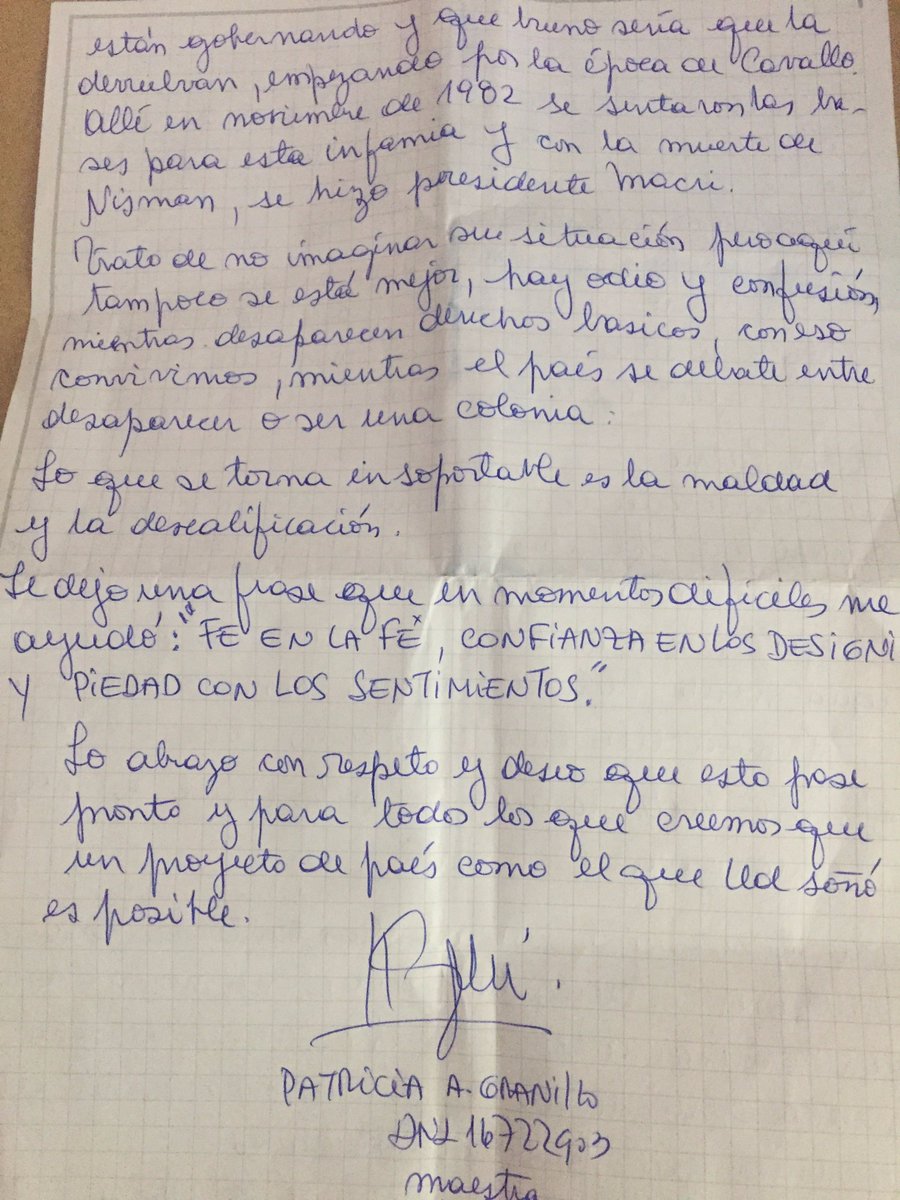 están gobernando y que bueno sería que la
devuelvan, empezando por la época de Cavallo.
Allé en noviembre de 1982 se sentaron las ba-
ses para esta infamia y con la muerte de
Nisman, se hizo presidente Macri.
Trato de no imaginar su situación pero aquí
tampoco se está mejor, hay odio y confusión,
mientras desaparecen derechos basicos, con eso
convivimos, mientras el país se debate entre
desaparecer o ser una colonia.
Lo que se torna insoportable es la maldad
y la descalificación.
Le dejo una frase que en momentos dificiles me
ayudó: "FE EN LA FE", CONFIANZA EN LOS DESIGNI
Y PIEDAD CON LOS SENTIMIENTOS."
Lo abrazo con respeto y deseo que esto pase
pronto y para todos los que creemos que
un proyecto de país como el que Ud soñó
es posible.
PATRICIA A. GRANILLO
DNI 16722903
maestra